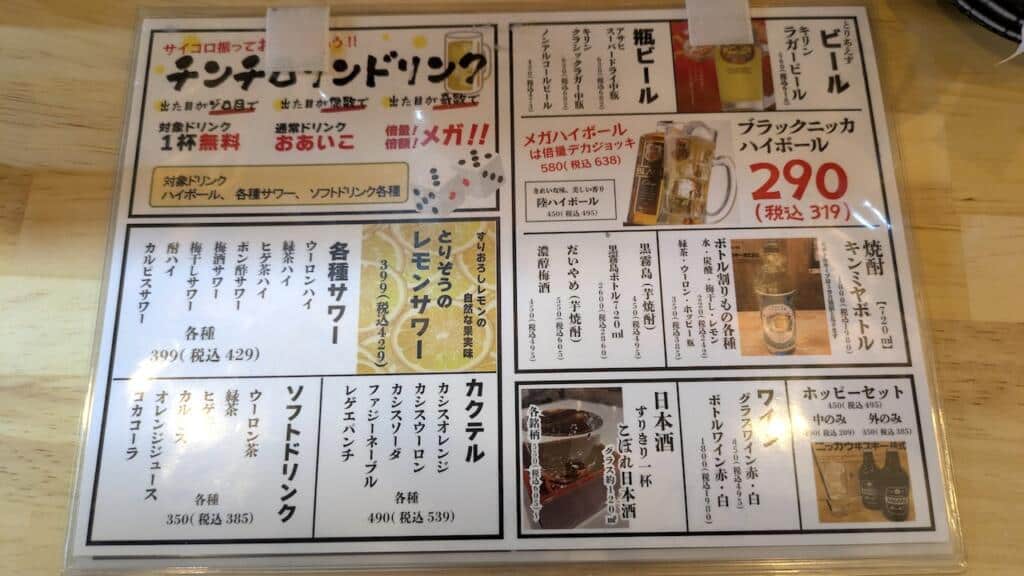 サイコロ振ってお
チンチロリンドリンク
出た目がゾロ目で
対象ドリンク
1杯無料
出た目が偶数で
通常ドリンク
おあいこ
出た目が奇数で
倍量!
倍額!
メガ!!
対象ドリンク
ハイボール、各種サワー、ソフトドリンク各種
とりあえず
ビール
キリン
ラガービール
瓶ビール
アサヒ
スーパードライ中瓶
キリン
クラシックラガー中瓶
ノンアルコールビール
ブラックニッカ
ハイボール
290
(税込 319)
メガハイボール
は倍量デカジョッキ
580(税込 638)
きれいな味、美しい香り
陸ハイボール
450(税込495)
すりおろしレモンの
自然な果実味
とりそうの
レモンサワー
399(税込429)
各種サワー
ウーロンハイ
緑茶ハイ
ヒゲ茶ハイ
ポン酢サワー
梅酒サワー
梅干しサワー
酎ハイ
カルピスサワー
各種
399(税込 429)
焼酎
【720㎖】
キンミヤボトル
ボトル割りもの各種
水・炭酸・梅干し・レモン
緑茶・ウーロン・ホッピー瓶
黒霧島(芋焼酎)
450(税込495)
黒霧島ボトル720㎖
2600(税込2860)
だいやめ(芋焼酎)
550(税込605)
濃醇梅酒
450(税込495)
カクテル
カシスオレンジ
カシスウーロン
カシスソーダ
ファジーネーブル
レゲエパンチ
各種
490(税込 539)
ソフトドリンク
ウーロン茶
緑茶
ヒゲ
カル
ス
オレンジジュース
コカコーラ
各種
350(税込 385)
ホッピーセット
450(税込 495)
中のみ
外のみ
350(税込 385)
ワイン
グラスワイン赤・白
450(税込495)
ボトルワイン赤・白
1800(税込1980)
日本酒
すりきり一杯
こぼれ日本酒
グラス約120㎖
各銘柄550(税込605)〜